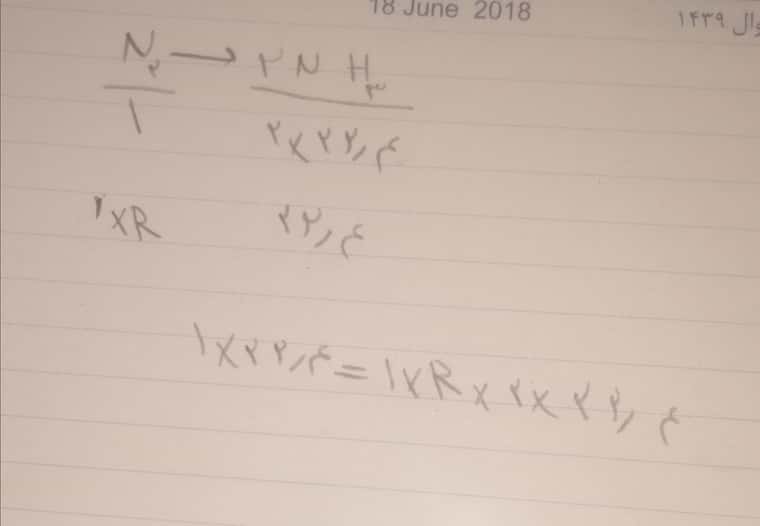 18 June 2018
وال ۱۴۳۹
N₂ → ۲ N H₃
۱
۲×۲۲٫۴
۱×R
۲۲٫۴
۱×۲۲٫۴=۱×R×۲×۲۲٫۴